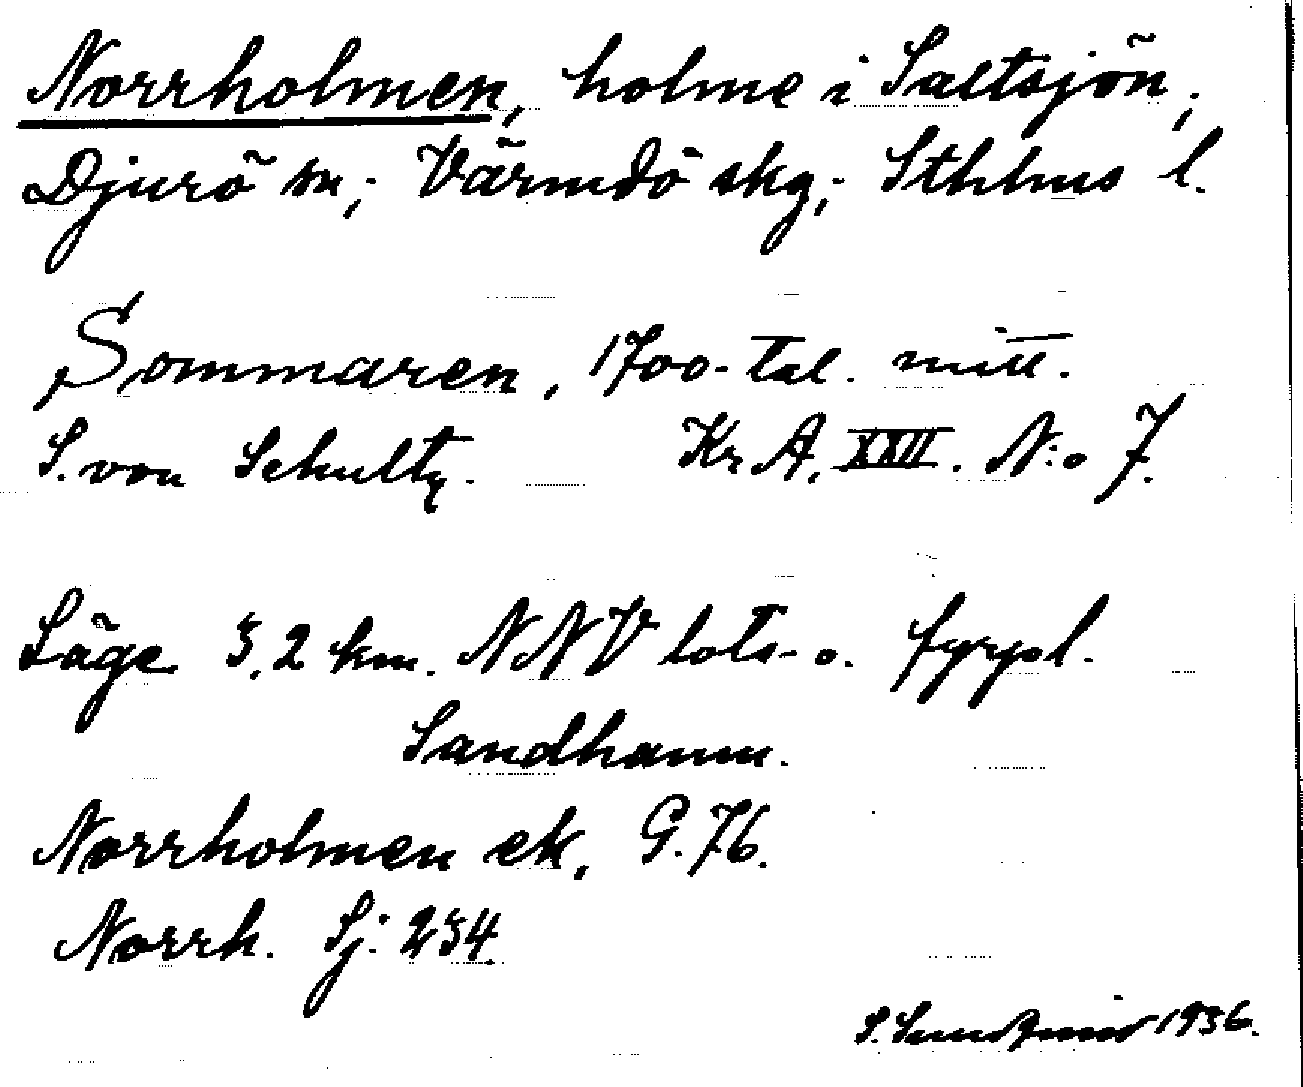 Norrholmen, holme i Saltsjön,
Djurö sn; Värmdö skg; Sthlms l.
Sommaren, 1700-tal. mitt.
S. von Schultz. Kr A, XXII. N:o 7.
Läge 3,2 km. NNV lots- o. fyrpl.
Sandhamn.
Norrholmen ek, G.76.
Norrh. Sj: 234.
S. 1936.